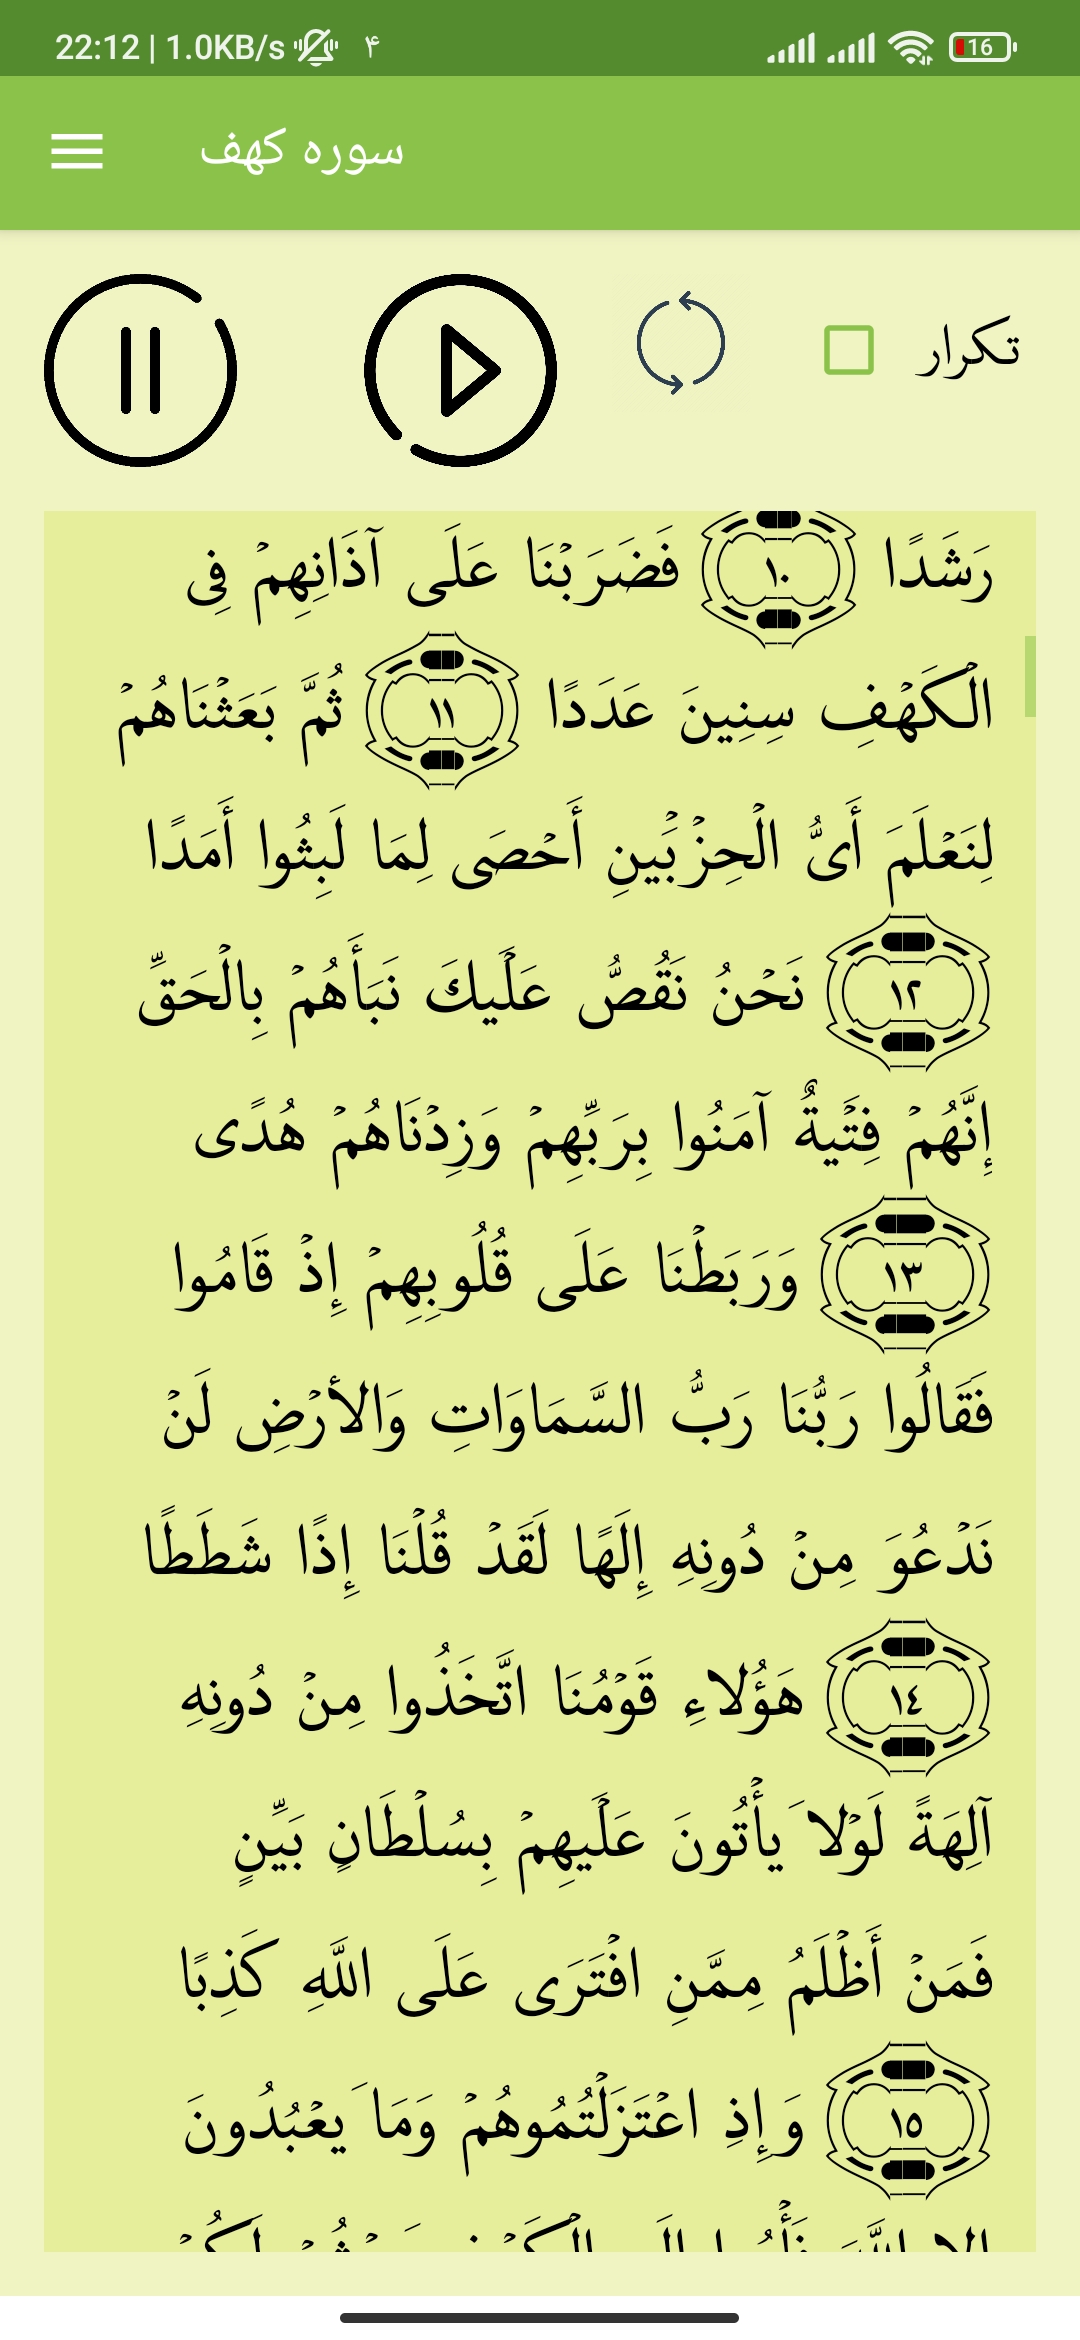 22:12 | 1.0KB/s ۴ 16
سوره کهف
تکرار
رَشَدًا ١٠ فَضَرَبْنَا عَلَى آذَانِهِمْ فِى
الْكَهْفِ سِنِينَ عَدَدًا ١١ ثُمَّ بَعَثْنَاهُمْ
لِنَعْلَمَ أَىُّ الْحِزْبَيْنِ أَحْصَى لِمَا لَبِثُوا أَمَدًا
١٢ نَحْنُ نَقُصُّ عَلَيْكَ نَبَأَهُمْ بِالْحَقِّ
إِنَّهُمْ فِتْيَةٌ آمَنُوا بِرَبِّهِمْ وَزِدْنَاهُمْ هُدًى
١٣ وَرَبَطْنَا عَلَى قُلُوبِهِمْ إِذْ قَامُوا
فَقَالُوا رَبُّنَا رَبُّ السَّمَاوَاتِ وَالأرْضِ لَنْ
نَدْعُوَ مِنْ دُونِهِ إِلَهًا لَقَدْ قُلْنَا إِذًا شَطَطًا
١٤ هَؤُلاءِ قَوْمُنَا اتَّخَذُوا مِنْ دُونِهِ
آلِهَةً لَوْلا يَأْتُونَ عَلَيْهِمْ بِسُلْطَانٍ بَيِّنٍ
فَمَنْ أَظْلَمُ مِمَّنِ افْتَرَى عَلَى اللَّهِ كَذِبًا
١٥ وَإِذِ اعْتَزَلْتُمُوهُمْ وَمَا يَعْبُدُونَ